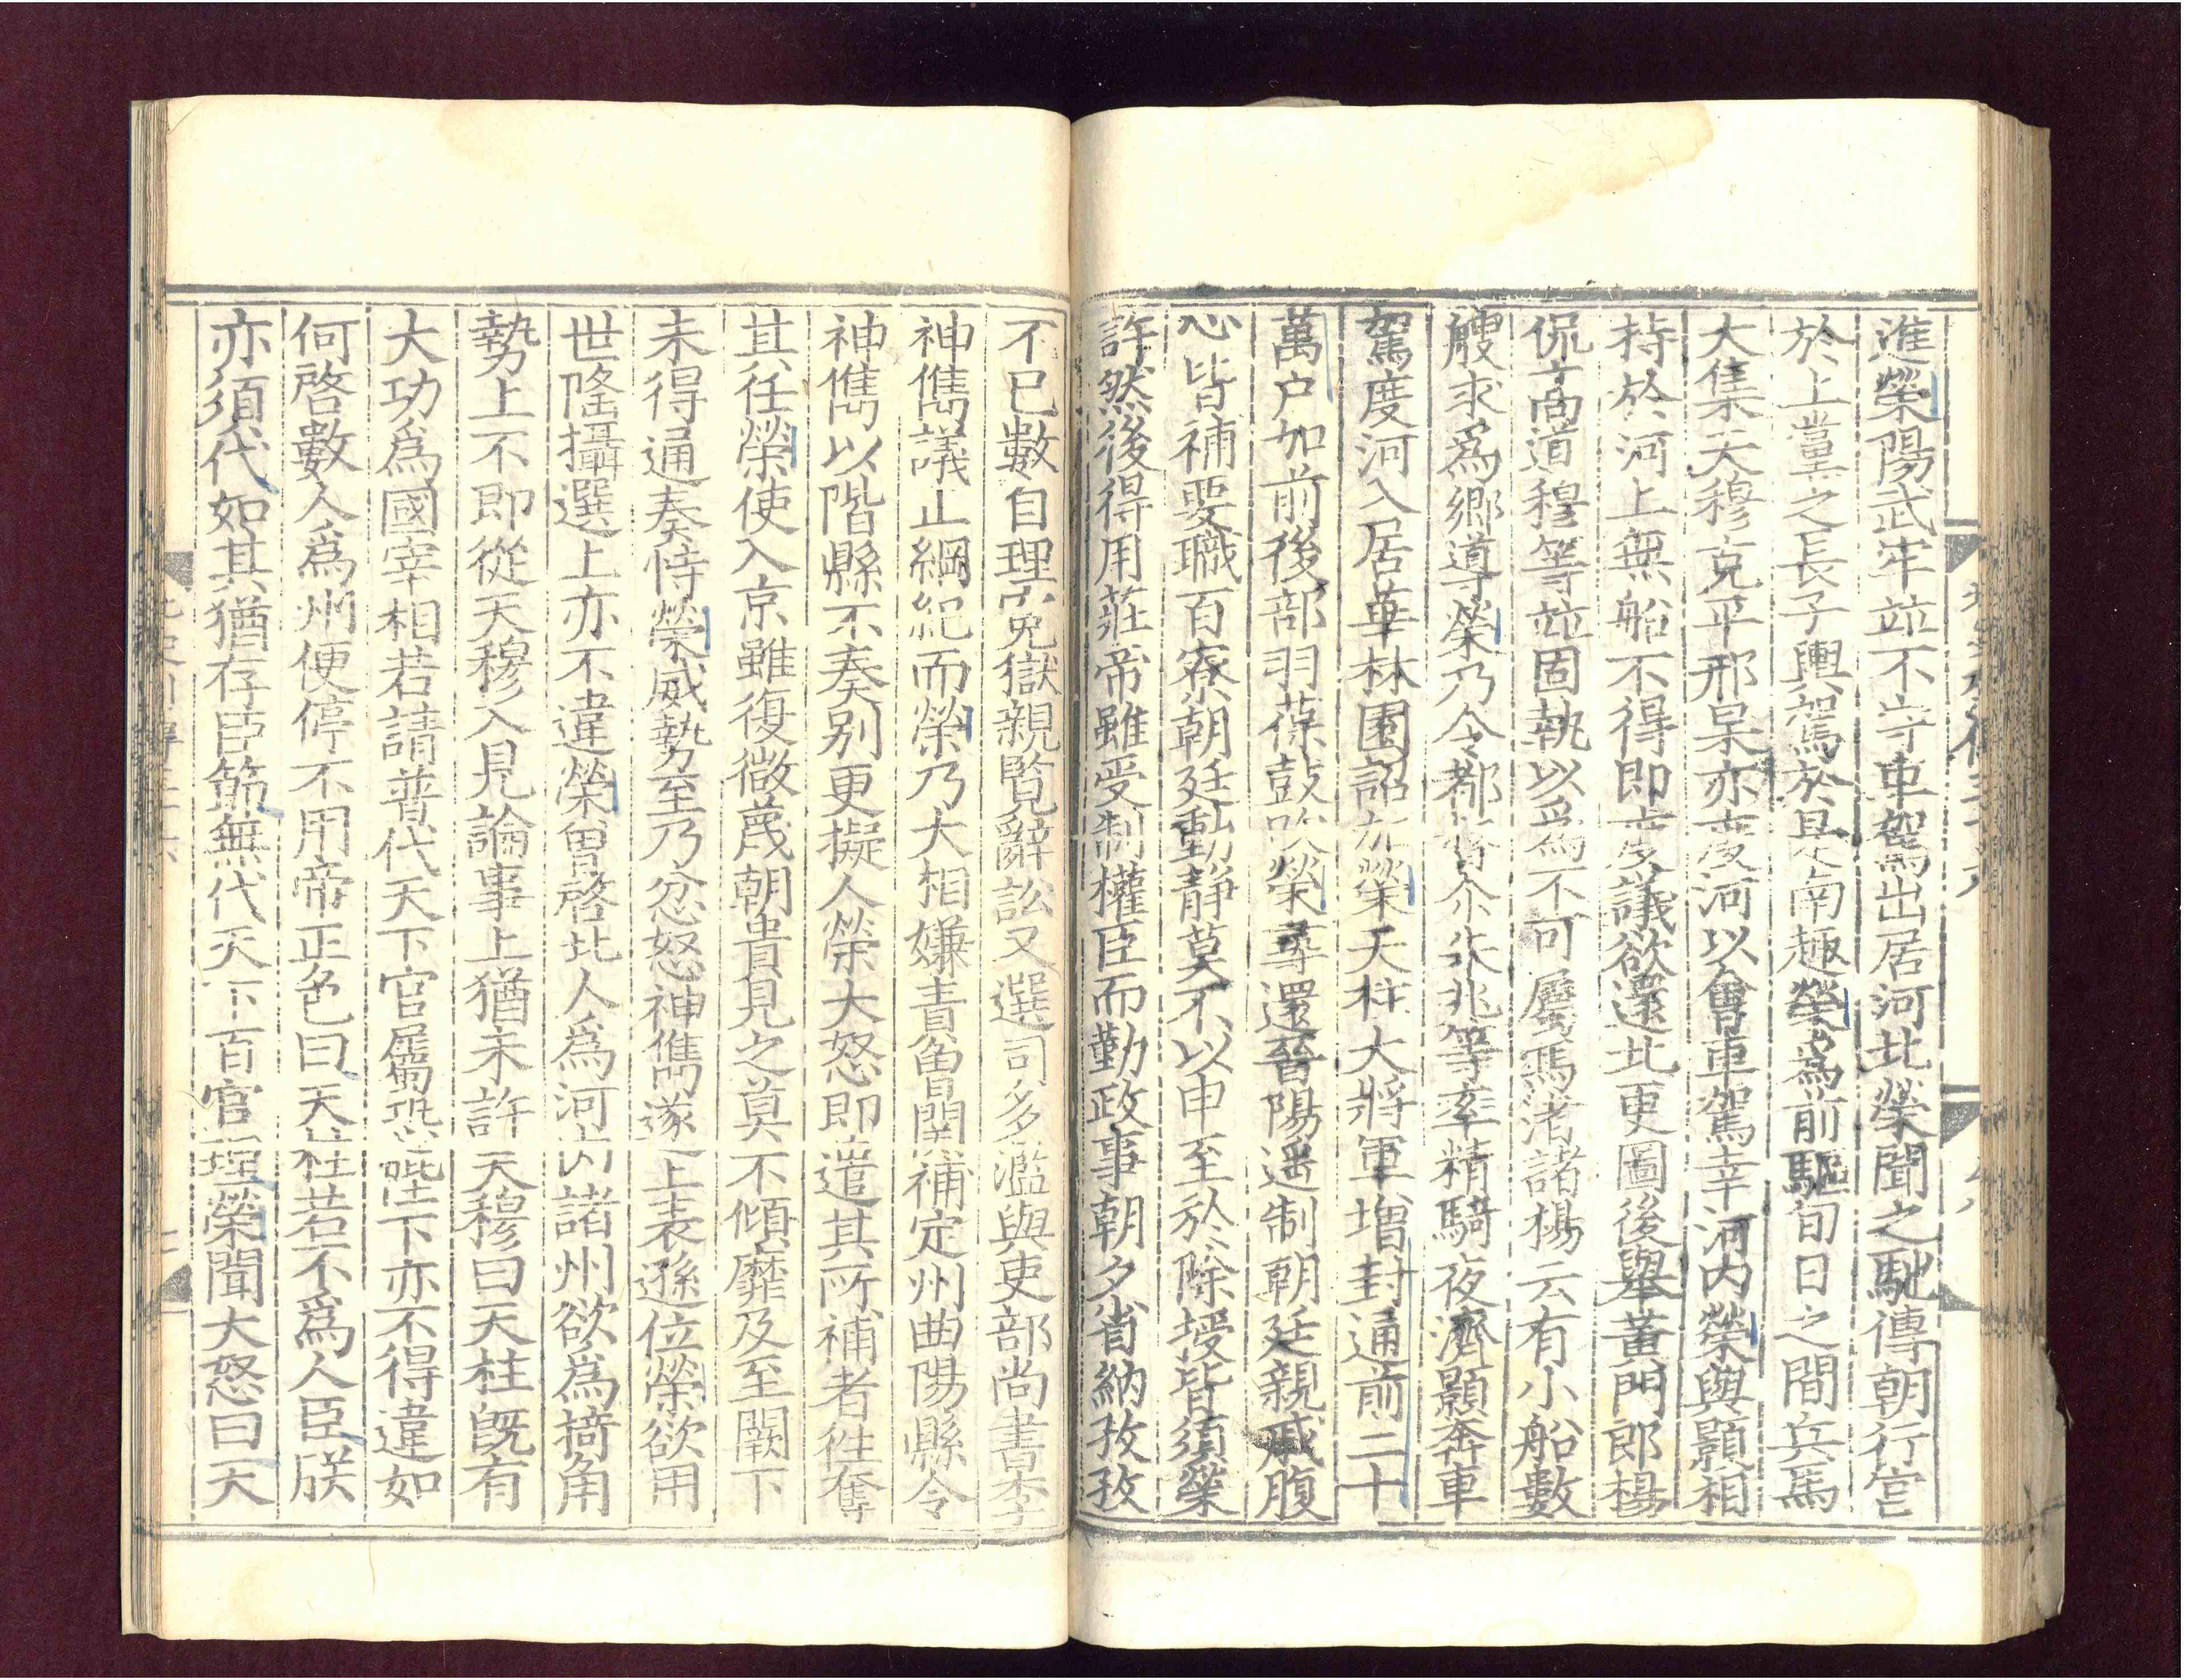 進榮陽武牢並不守車駕出居河北榮聞之馳傳朝行宮
於上黨之長子輿駕於是南趣榮爲前驅旬日之間兵馬
大集天穆克平邢杲亦度河以會車駕幸河內榮與顥相
持於河上無船不得即度議欲還北更圖後舉黃門郎楊
侃高道穆等並固執以爲不可屬馬渚諸楊云有小船數
艘求爲鄉導榮乃令都督尒朱兆等率精騎夜濟顥奔車
駕度河入居華林園詔加榮天柱大將軍增封通前二十
萬户加前後部羽葆鼓吹榮尋還晉陽遥制朝廷親戚腹
心皆補要職百寮朝廷動靜莫不以申至於除授皆須榮
許然後得用莊帝雖受制權臣而勤政事朝夕省納孜孜
不已數自理寃獄親覧辭訟又選司多濫與吏部尚書李
神儁議正綱紀而榮乃大相嫌責曾關補定州曲陽縣令
神儁以階縣不奏别更擬人榮大怒即遣其所補者徃奪
其任榮使入京雖復微蔑朝貴見之莫不傾靡及至闕下
未得通奏恃榮威勢至乃忿怒神儁遂上表遜位榮欲用
世隆攝選上亦不違榮曾啓北人爲河內諸州欲爲掎角
勢上不即從天穆入見論事上猶未許天穆曰天柱旣有
大功爲國宰相若請普代天下官屬恐陛下亦不得違如
何啓數人爲州便停不用帝正色曰天柱若不爲人臣朕
亦須代如其猶存臣節無代天下百官理榮聞大怒曰天
北史列傳三十六